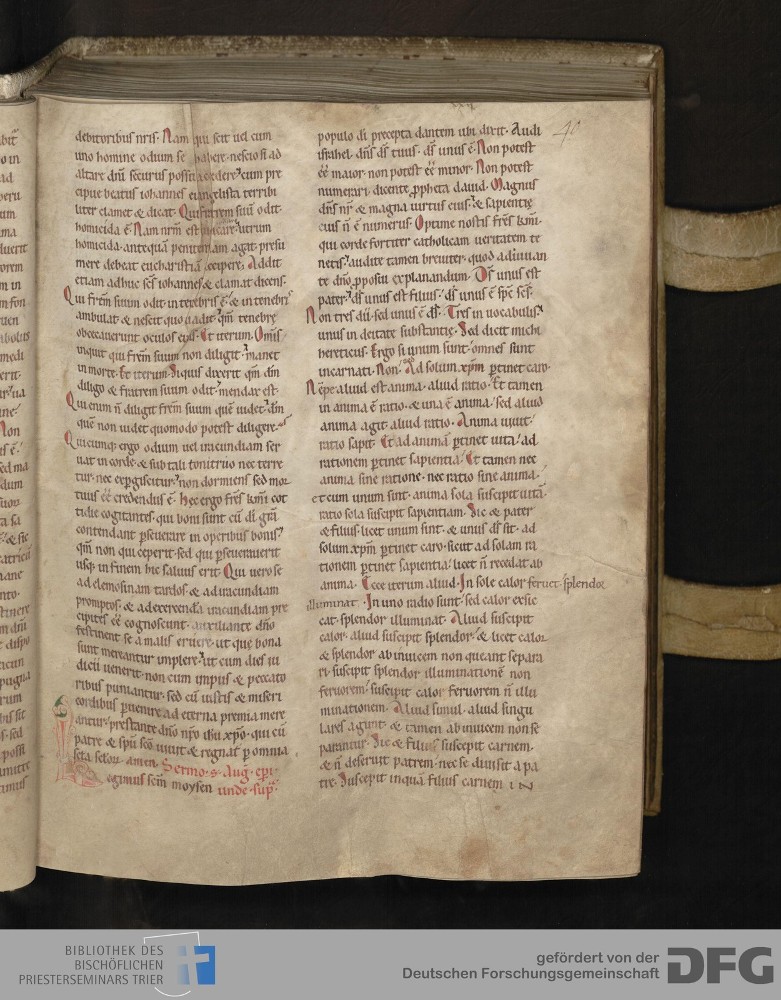 debitoribus nr̄is. Nam qui scit vel cum
uno homine odium se habere. nescio si ad
altare dn̄i securus possit accedere. cum pre
cipue beatus iohannes evangelista terribi
liter clamet & dicat. Qui fratrem suū odit.
homicida ē. Nam nr̄m est iudicare. utrum
homicida antequā penitentiam agat. presu
mere debeat eucharistiā accipere. Addit
etiam adhuc sc̄s iohannes & clamat dicens.
Qui fr̄em suum odit. in tenebris ē. & in tenebris
ambulat. & nescit quo vadit. qm̄ tenebrę
obcecaverunt oculos eius. Et iterum. Omīs
inquit qui fr̄em suum non diligit. manet
in morte. Et iterum. Siquis dixerit qm̄ dm̄
diligo & fratrem suum odit. mendax est.
Qui enim n̄ diligit fr̄em suum quē videt. dm̄
quē non videt quomodo potest diligere.
Quicumq; ergo odium vel iracundiam ser
vat in corde. & sub tali tonitruo nec terre
tur. nec exp̄giscitur. non dormiens sed mor
tuus eē credendus ē. Hec ergo fr̄s km̄i cot
tidie cogitantes. qui boni sunt cū dī grā
contendant p̄severare in operibus bonis.
qm̄ non qui ceperit. sed qui p̄severaverit
usq; in finem hic salvus erit. Qui vero se
ad elemosinam tardos. & ad iracundiam
promptos. & ad exercendā iracundiam pre
cipites eē cognoscunt. auxiliante dn̄o
festinent se a malis eruere. ut que bona
sunt mereantur implere. ut cum dies iu
dicii venerit. non cum impiis & peccato
ribus puniantur. sed cū iustis & miseri
cordibus p̄venire ad eterna premia mere
antur. prestante dn̄o nr̄o ihū xp̄o. qui cū
patre & spū sc̄o vivit & regnat p̄ omnia
scl̄a scl̄or. amen. Sermo. s. Aug. epi.
Legimus sc̄m moysen unde sup.
populo dī precepta dantem ubi dixit. Audi
israhel. dn̄s ds̄ tuus. ds̄ unus ē. Non potest
eē maior. non potest eē minor. Non potest
numerari. dicente p̄pheta david. Magnus
dn̄s nr̄ & magna virtus eius. & sapientię
eius n̄ ē numerus. Optime nostis fr̄es km̄i.
qui corde fortiter catholicam veritatem te
netis. audite tamen breviter. quod adiuvan
te dn̄o p̄posui explanandum. Ds̄ unus est
pater. ds̄ unus est filius. ds̄ unus ē sp̄c sc̄s.
Non tres dii. sed unus ē ds̄. Tres in vocabulis.
unus in deitate substantię. Sed dicit michi
hereticus. Ergo si unum sunt. omnes sunt
incarnati. Non. Ad solum xp̄m p̄tinet caro.
Nēpe aliud est anima. aliud ratio. Et tamen
in anima ē ratio. & una ē anima. sed aliud
anima agit aliud ratio. Anima vivit.
ratio sapit. Et ad animā p̄tinet vita. ad
rationem p̄tinet sapientia. Et tamen nec
anima sine ratione. nec ratio sine anima.
et cum unum sint. anima sola suscipit vitā.
ratio sola suscipit sapientiam. Sic & pater
& filius. licet unum sint. & unus ds̄ sit. ad
solum xp̄m p̄tinet caro. sicut ad solam ra
tionem p̄tinet sapientia. licet n̄ recedat ab
anima. Ecce iterum aliud. In sole calor fervet. splendor
illuminat. In uno radio sunt. sed calor exsic
cat. splendor illuminat. Aliud suscipit
calor. aliud suscipit splendor. & licet calor
& splendor ab invicem non queant separa
ri. suscipit splendor illuminationē non
fervorem. suscipit calor fervorem n̄ illu
minationem. Aliud simul. aliud singu
lares agunt. & tamen ab invicem non se
parantur. Sic & filius suscepit carnem.
& n̄ deseruit patrem. nec se divisit a pa
tre. Suscepit inquā filius carnem in
40
BIBLIOTHEK DES
BISCHÖFLICHEN
PRIESTERSEMINARS TRIER
gefördert von der
Deutschen Forschungsgemeinschaft
DFG